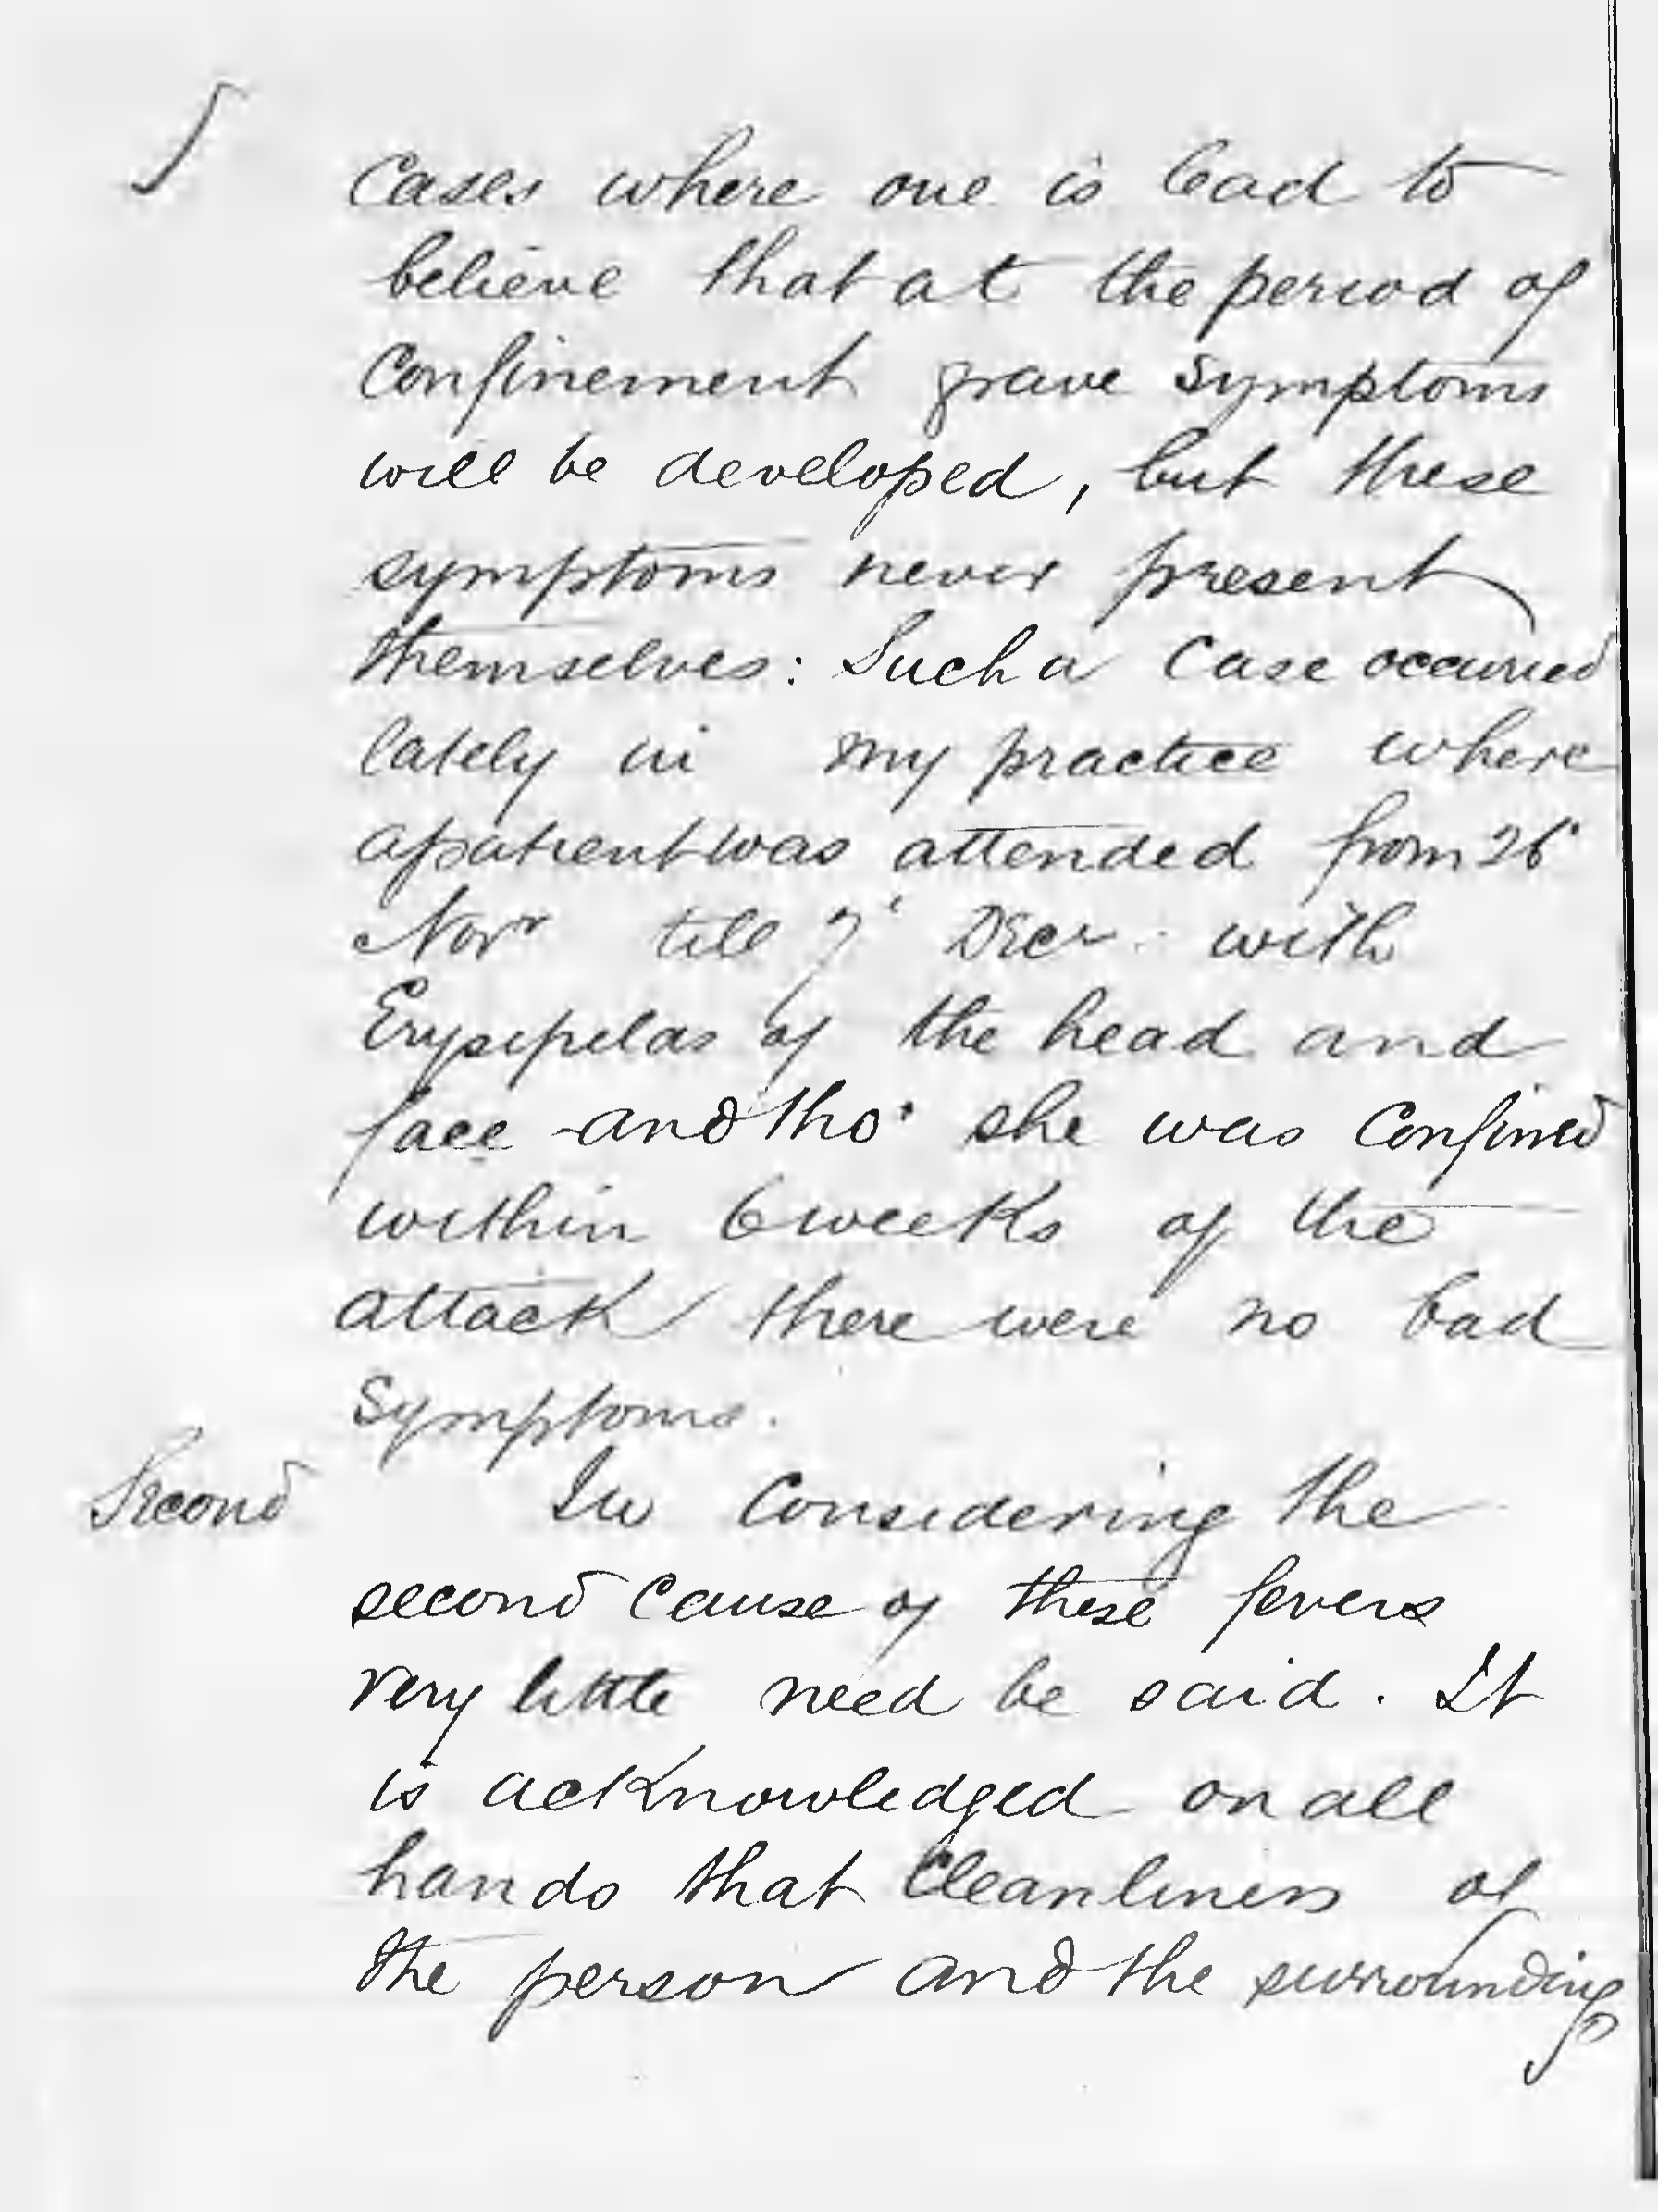 5
Cases where one is lead to
believe that at the period of
Confinement grave symptoms
will be developed, but these
symptoms never present
themselves: Such a case occurred
lately in my practice where
a patient was attended from 26'
Novr till 7' Decr. with
Erysipelas of the head and
face and tho' she was Confined
within 6 weeks of the
attack there were no bad
Symptoms.
Second In Considering the
second Cause of these fevers
very little need be said. It
is acknowledged on all
hands that Cleanliness of
the person and the surroundings